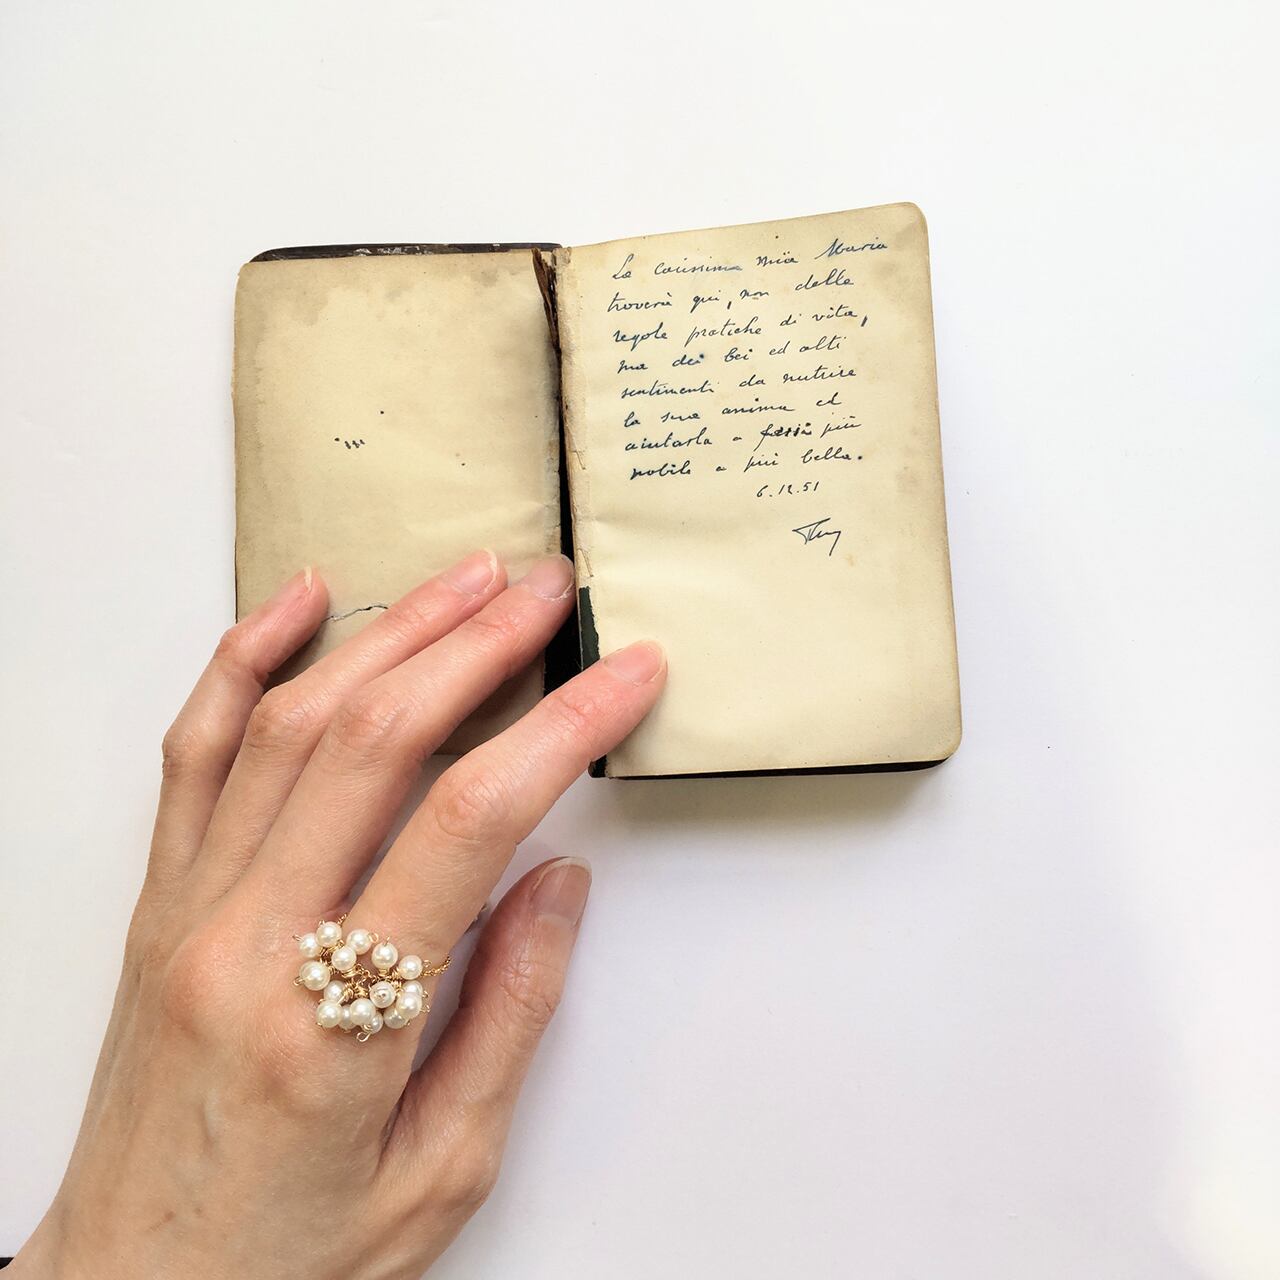 La carissima mia Maria
troverà qui, non delle
regole pratiche di vita,
ma dei bei ed alti
sentimenti da nutrire
la sua anima ed
aiutarla a farsi più
nobile e più bella.
6.12.51